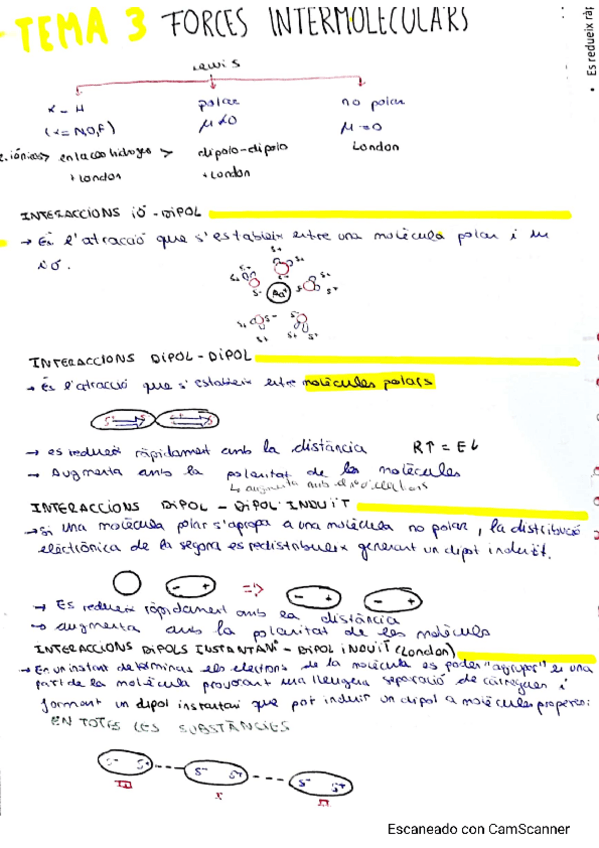 TEMA 3 FORCES INTERMOLECULARS
Es redueix ràp
Lewis
x-H polar no polar
(x=N,O,F) μ≠0 μ=0
iónicas> enlaces hidrogeo > dipolo-dipolo London
+London +London
INTERACCIONS IÓ-DIPOL
→ És l'atracció que s'estableix entre una molècula polar i un
ió.
INTERACCIONS DIPOL-DIPOL
→ És l'atracció que s'estableix entre molècules polars
→ es redueix ràpidament amb la distància R↑ = E↓
→ Augmenta amb la polaritat de les molècules
↳ augmenta amb
INTERACCIONS DIPOL - DIPOL INDUÏT
→ Si una molècula polar s'apropa a una molècula no polar, la distribució
electrònica de la segona es redistribueix generant un dipol induït.
- + => - + - +
→ Es redueix ràpidament amb la distància
→ augmenta amb la polaritat de les molècules
INTERACCIONS DIPOLS INSTANTANI - DIPOL INDUÏT (London)
→ En un instant determinat els electrons de la molècula es poden "agrupar" en una
part de la molècula provocant una lleugera separació de càrregues i
formant un dipol instantani que pot induir un dipol a molècules properes:
EN TOTES LES SUBSTÀNCIES
δ- δ+ δ- δ+ δ- δ+
Escaneado con CamScanner